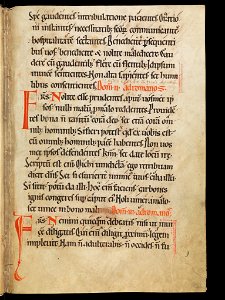 Spe gaudentes in tribulatione pacientes. Oratio
ni instantes. necessitatibus scōꝝ communicantes
hospitalitatem sectantes. Benedicite persequentibus
vos benedicite et nolite maledicere. Gau
dere cū gaudentibus. flere cū flentib; Idipsum
invicem sentientes. Non alta sapientes sed humi
libus consentientes. ad romanos.
FRS. Nolite esse prudentes apud vosmet ip
sos. nulli malū pro malo reddentes. Providen
tes bona ñ tantū corā deo. sed etiā corā om
nib; hominib; Si fieri potest qd ex vobis est
cū omnib; hominib; pacē habentes. Non vos
met ipsos defendentes. sed date locū irę.
Scriptū est enī. Michi vindictā. ego retribuam
dicit dñs. Sed si esurierit inimic' tuus. ciba illū.
Si sitit. potū da illi. Hoc enī faciens. carbones
ignis congeres sup caput ei'. Noli vinci a malo.
sed vince in bono malū. ad romanos.
FRS. Nemini quicquā debeatis. nisi ut invi
cē diligatis. Qui enī diligit proximū. legem
implevit. Nam ñ adulterabis. ñ occides. ñ fu